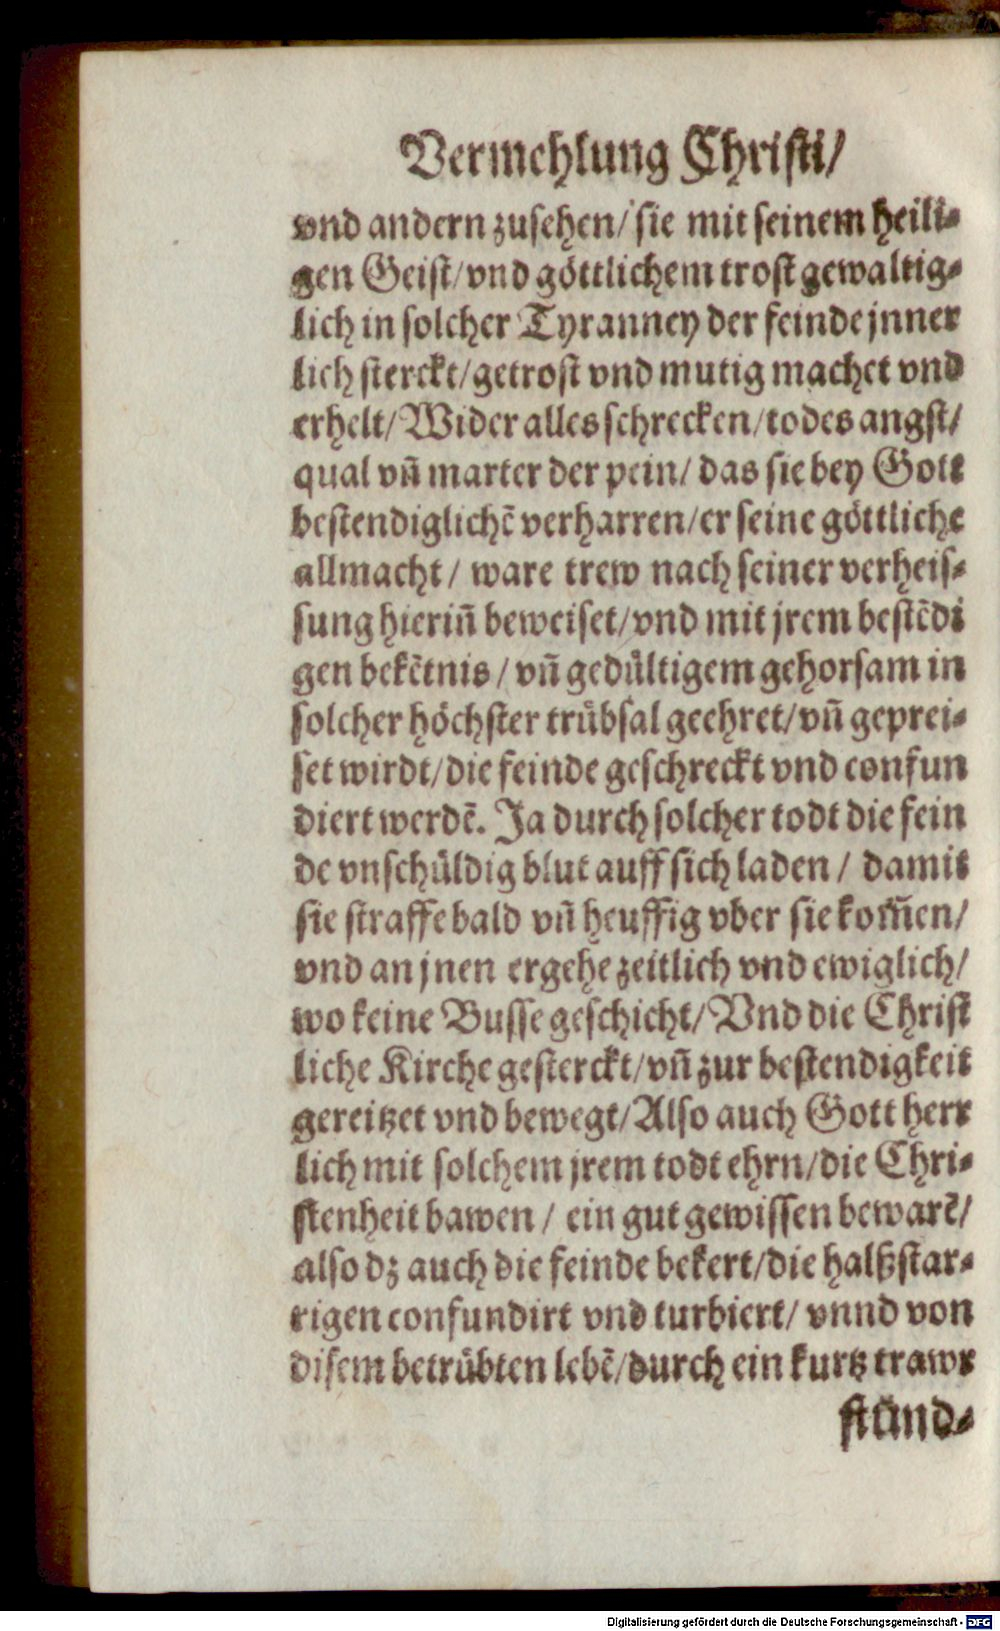 Vermehlung Christi/
vnd andern zusehen/ sie mit seinem heili⸗
gen Geist/ vnd göttlichem trost gewaltig⸗
lich in solcher Tyranney der feinde jnner
lich sterckt/ getrost vnd mutig machet vnd
erhelt/ Wider alles schrecken/ todes angst/
qual vn̄ marter der pein/ das sie bey Gott
bestendiglichē verharren/ er seine göttliche
allmacht/ ware trew nach seiner verheis⸗
sung hierin̄ beweiset/ vnd mit jrem bestēdi
gen bekētnis/ vn̄ gedültigem gehorsam in
solcher höchster trübsal geehret/ vn̄ geprei⸗
set wirdt/ die feinde geschreckt vnd confun
diert werdē. Ja durch solcher todt die fein
de vnschüldig blut auff sich laden/ damit
sie straffe bald vn̄ heuffig vber sie kom̄en/
vnd an jnen ergehe zeitlich vnd ewiglich/
wo keine Busse geschicht/ Vnd die Christ
liche Kirche gesterckt/ vn̄ zur bestendigkeit
gereitzet vnd bewegt/ Also auch Gott herr
lich mit solchem jrem todt ehrn/ die Chri⸗
stenheit bawen/ ein gut gewissen bewarē/
also dz auch die feinde bekert/ die halßstar⸗
rigen confundirt vnd turbiert/ vnnd von
disem betrübten lebē/ durch ein kurtz trawr
stünd⸗
Digitalisierung gefördert durch die Deutsche Forschungsgemeinschaft - DFG